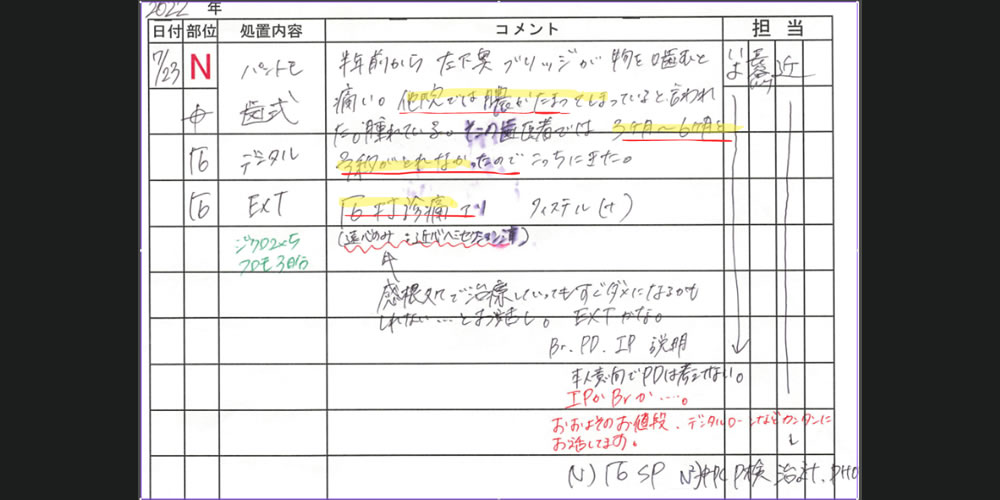 2022 年
日付 部位 処置内容 コメント 担当
7/23 N パントモ 半年前から 左下奥 ブリッジが 物を噛むと
歯式 痛い。他院では膿がたまってしまっていると言われ
た。腫れている。その歯医者では 3ヶ月〜6ヶ月
6 デンタル 予約がとれなかったので こっちにきた。
6 EXT 6 打診痛 (+)
ジクロ2×5 (遠心のみ:近心ヘミセクション済)
フロモ3日分
感根処で治療していってもすぐダメになるかも
しれない…とお話し。 EXTかな。
Br. PD. IP 説明
本人意向でPDは考えてない。
IPかBrか…。
おおよそのお値段、デンタルローンなどカンタンに
お話してます。
(N) 6 SP P検